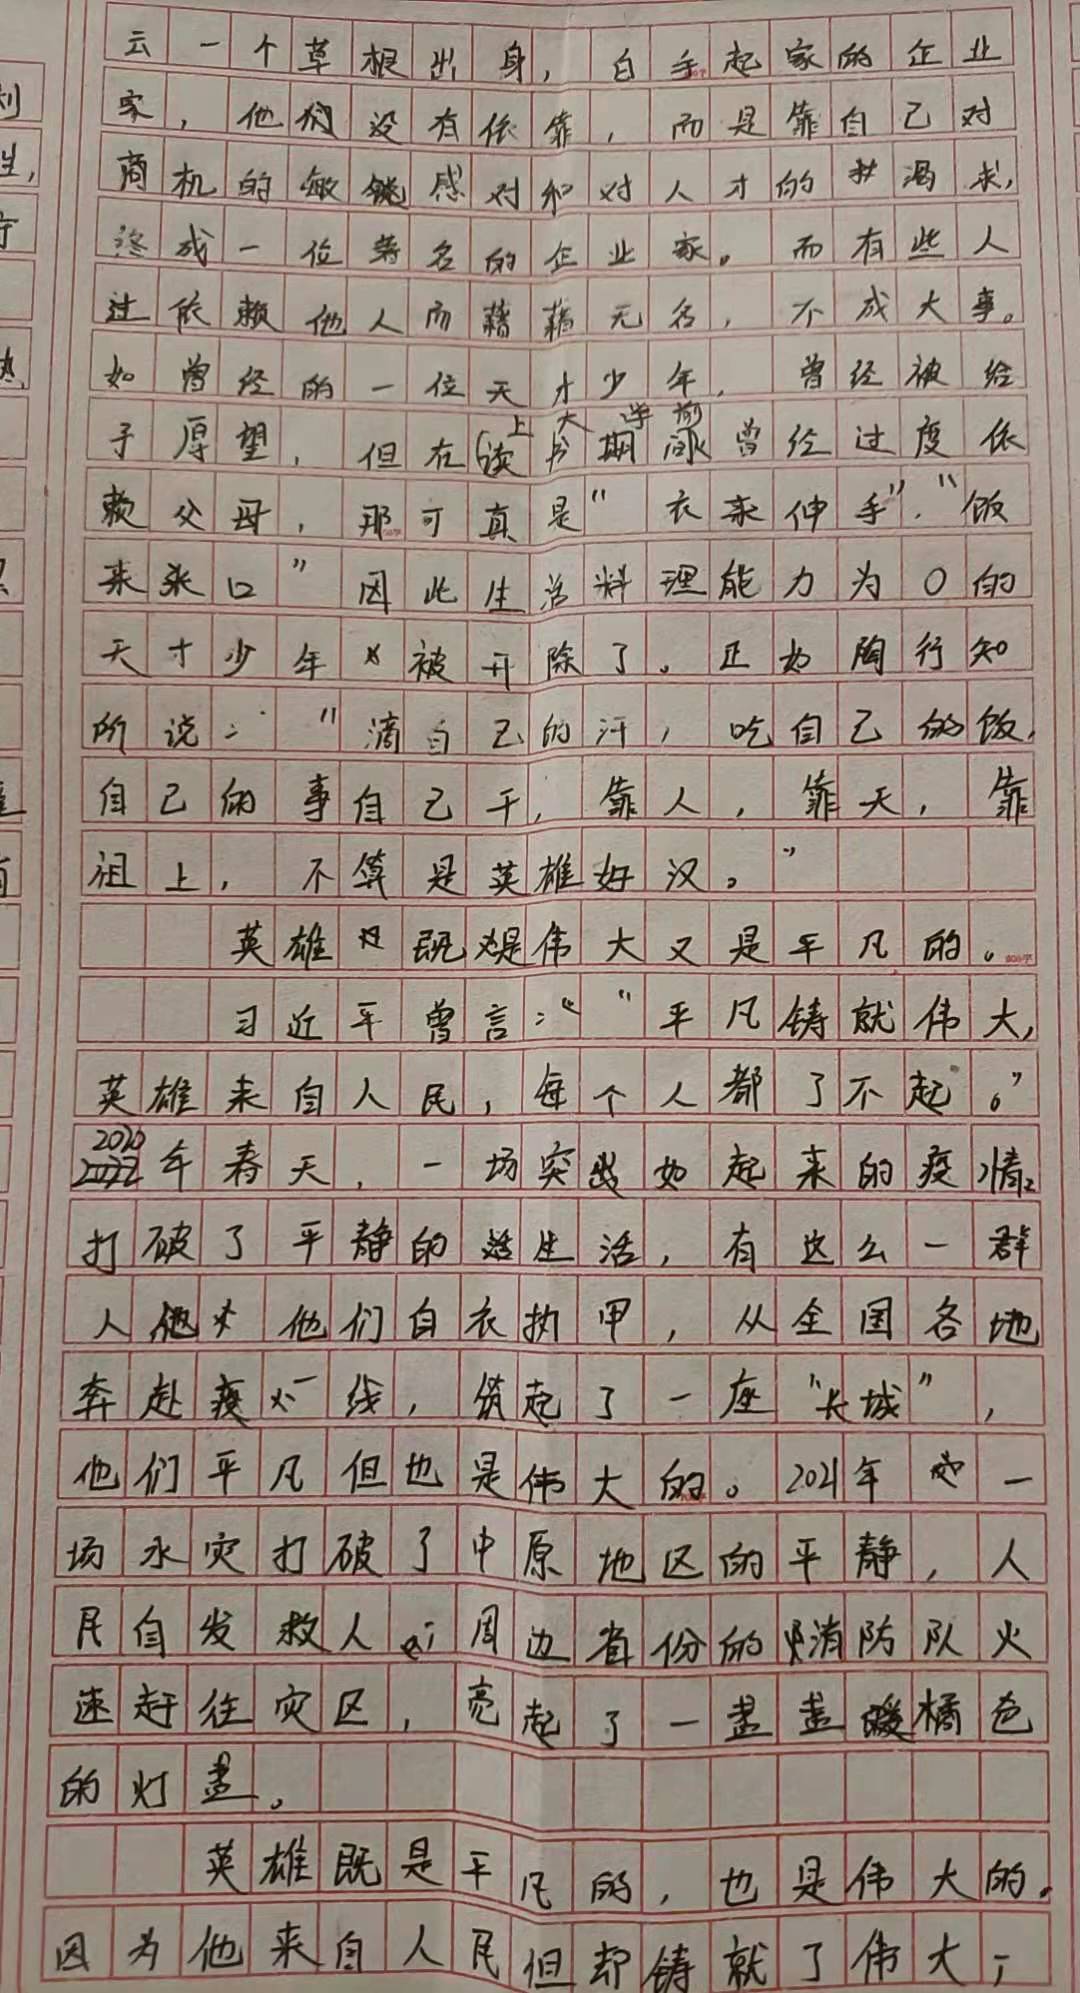 云一个草根出身，白手起家的企业
家，他没有依靠，而是靠自己对
商机的敏锐感和对人才的渴求，
终成一位著名的企业家。而有些人
过依赖他人而藉藉无名，不成大事。
如曾经的一位天才少年，曾经被给
上大学前
予厚望，但在读书期间曾经过度依
赖父母，那可真是“衣来伸手”，“饭
来张口”因此生活料理能力为0的
天才少年被开除了。正如陶行知
所说：“滴自己的汗，吃自己的饭，
自己的事自己干，靠人，靠天，靠
祖上，不算是英雄好汉。”
英雄既是伟大又是平凡的。
习近平曾言：“平凡铸就伟大，
英雄来自人民，每个人都了不起。”
2020年春天，一场突如起来的疫情
打破了平静的生活，有这么一群
人他们白衣执甲，从全国各地
奔赴疫一线，筑起了一座“长城”，
他们平凡但也是伟大的。2021年一
场水灾打破了中原地区的平静，人
民自发救人周边省份的消防队火
速赶往灾区，亮起了一盏盏暖橘色
的灯盏。
英雄既是平凡的，也是伟大的。
因为他来自人民但却铸就了伟大；